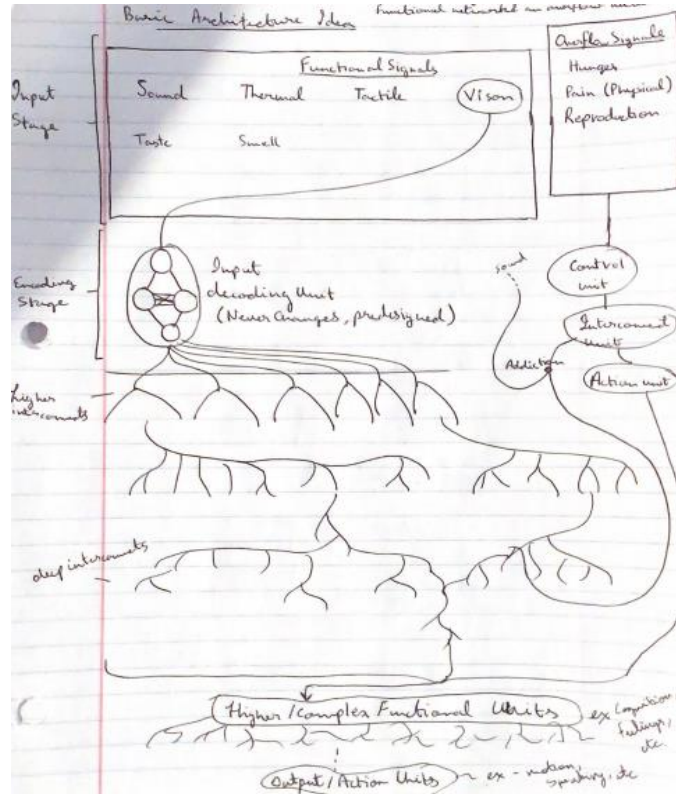 Basic Architecture Idea
Functional networks an overflow
Overflow Signals
Hunger
Pain (Physical)
Reproduction
Input
Stage
Functional Signals
Sound Thermal Tactile Vison
Taste Smell
Encoding
Stage
Input
decoding Unit
(Never Changes, predesigned)
Sound
Control
unit
Interconnect
unit
Addiction
Action unit
Higher
interconnects
deep interconnets
Higher/Complex Functional Units
ex Cognition,
feelings,
etc.
Output/Action Units
ex - motion,
speaking, etc